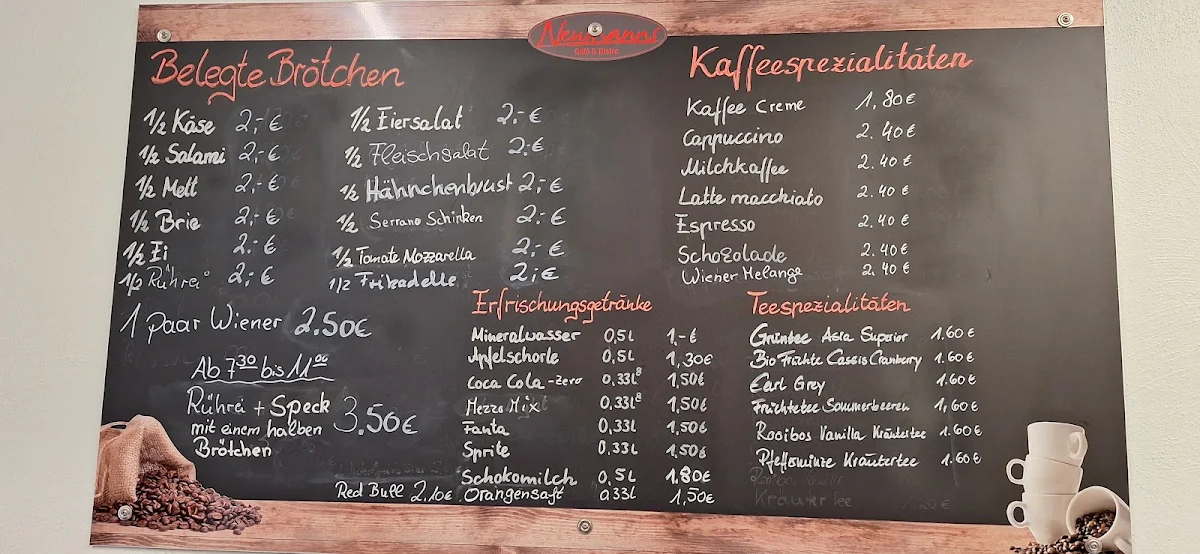 Neumanns
Café & Bistro
Belegte Brötchen
1/2 Käse 2,-€
1/2 Salami 2,-€
1/2 Mett 2,-€
1/2 Brie 2,-€
1/2 Ei 2,-€
1/2 Rührei 2,-€
1/2 Eiersalat 2,-€
1/2 Fleischsalat 2,-€
1/2 Hähnchenbrust 2,-€
1/2 Serrano Schinken 2,-€
1/2 Tomate Mozzarella 2,-€
1/2 Frikadelle 2,-€
1 Paar Wiener 2.50€
Ab 7³⁰ bis 11⁰⁰
Rührei + Speck
mit einem halben
Brötchen
3.50€
Kaffeespezialitäten
Kaffee Creme 1,80€
Cappuccino 2.40€
Milchkaffee 2.40€
Latte macchiato 2.40€
Espresso 2.40€
Schokolade 2.40€
Wiener Melange 2.40€
Erfrischungsgetränke
Mineralwasser 0,5L 1,-€
Apfelschorle 0,5L 1,30€
Coca Cola-zero 0,33L 1,50€
Mezzo Mix 0,33L 1,50€
Fanta 0,33L 1,50€
Sprite 0,33L 1,50€
Schokomilch 0,5L 1.80€
Orangensaft 0,33L 1,50€
Red Bull 2.10€
Teespezialitäten
Grüntee Asia Superior 1.60€
Bio Früchte Cassis Cranberry 1.60€
Earl Grey 1.60€
Früchtetee Sommerbeeren 1,60€
Rooibos Vanilla Kräutertee 1.60€
Pfefferminze Kräutertee 1.60€
Kräutertee